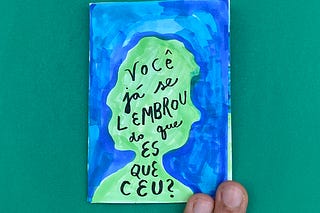 VOCÊ
já se
LEMBROU
do que
ES
QUE
CEU?